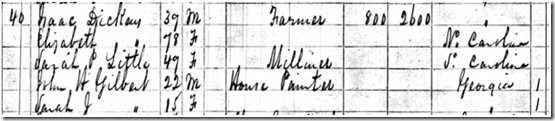 40 Isaac Dickens 39 M Farmer 800 2600 "
Elizabeth " 78 F No Carolina
Sarah P Little 49 F Milliner So Carolina
John W Gilbert 22 M House Painter Georgia 1
Sarah J " 15 F " 1